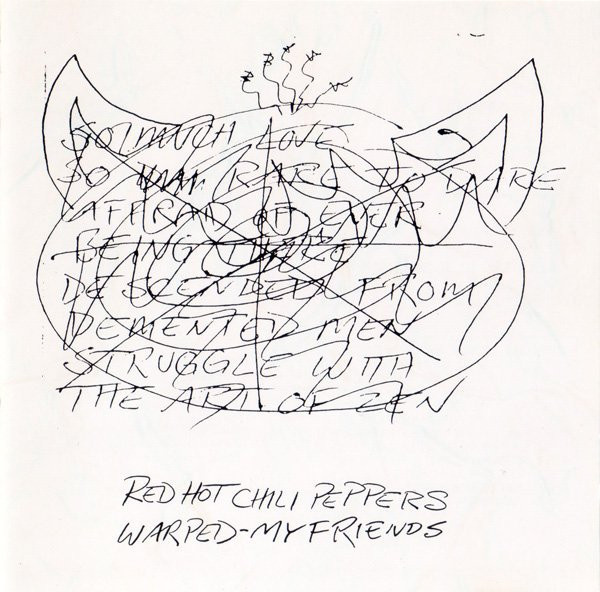 SO MUCH LOVE
SO RARE TO DARE
AFFRAID OF EVER
BEING THERE
DESCENDED FROM
DEMENTED MEN
STRUGGLE WITH
THE ART OF ZEN
RED HOT CHILI PEPPERS
WARPED-MY FRIENDS